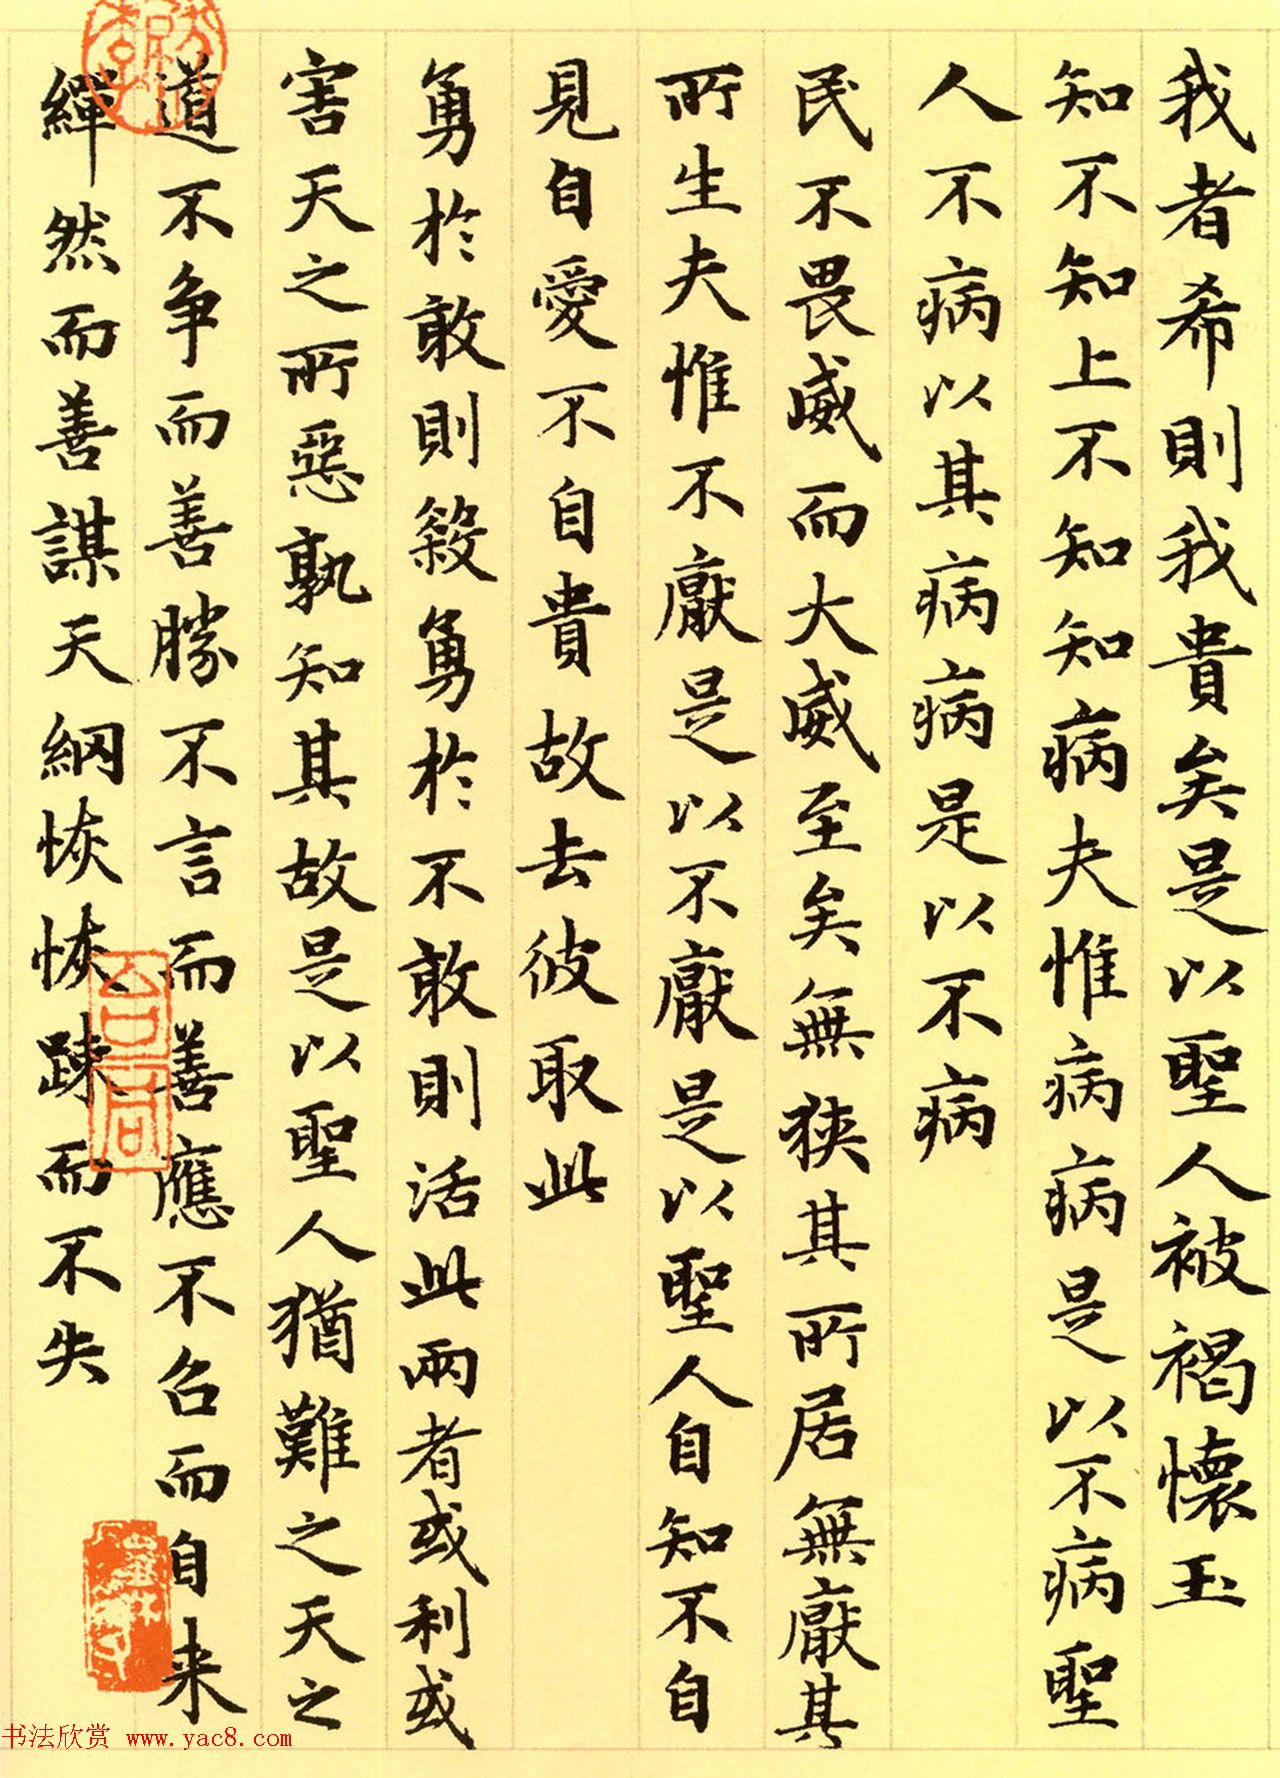 我者希則我貴矣是以聖人被褐懷玉
知不知上不知知病夫惟病病是以不病聖
人不病以其病病是以不病
民不畏威而大威至矣無狹其所居無厭其
所生夫惟不厭是以不厭是以聖人自知不自
見自愛不自貴故去彼取此
勇於敢則殺勇於不敢則活此兩者或利或
害天之所惡孰知其故是以聖人猶難之天之
道不争而善勝不言而善應不召而自来
繟然而善謀天網恢恢踈而不失
书法欣赏 www.yac8.com